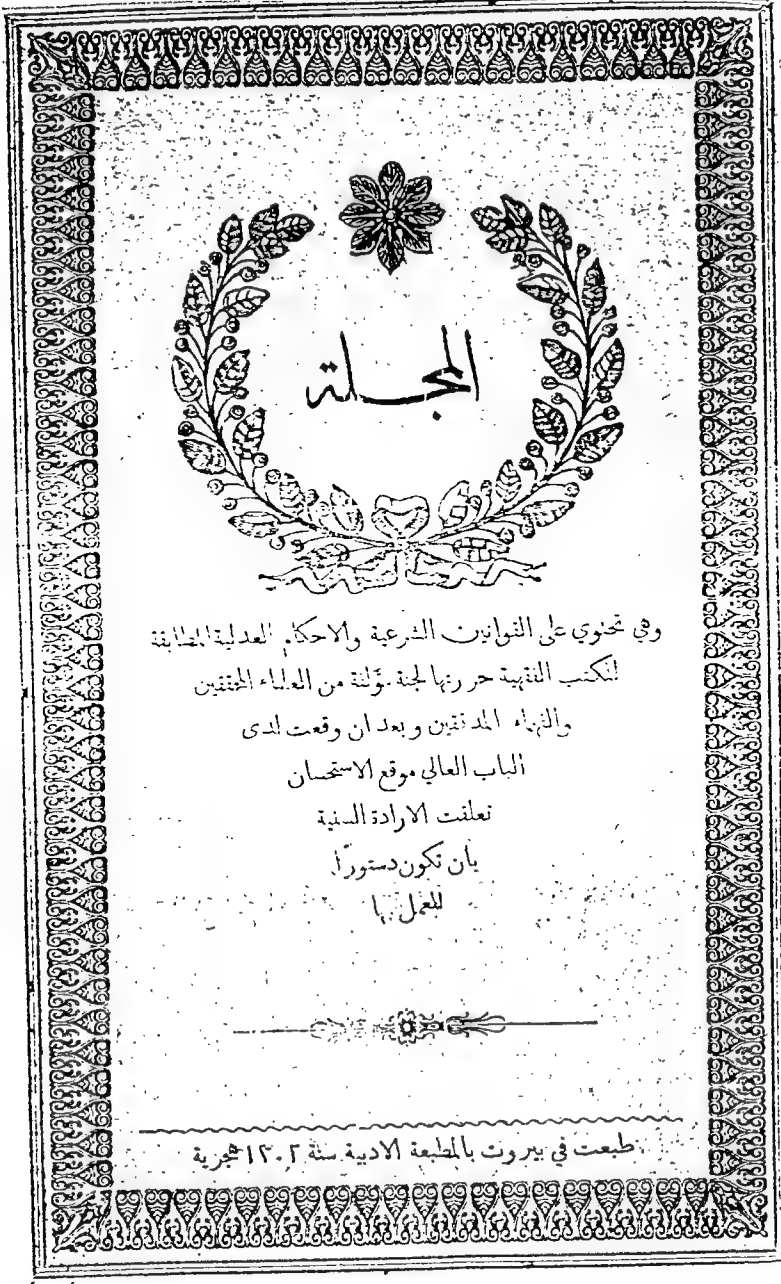 المجلة
وهي تحتوي على القوانين الشرعية والاحكام العدلية المطابقة
للكتب الفقهية حررتها لجنة مؤلفة من العلماء المحققين
والفقهاء المدققين وبعد ان وقعت لدى
الباب العالي موقع الاستحسان
تعلقت الارادة السنية
بان تكون دستوراً
للعمل بها
طبعت في بيروت بالمطبعة الادبية سنة ١٣٠٢ هجرية